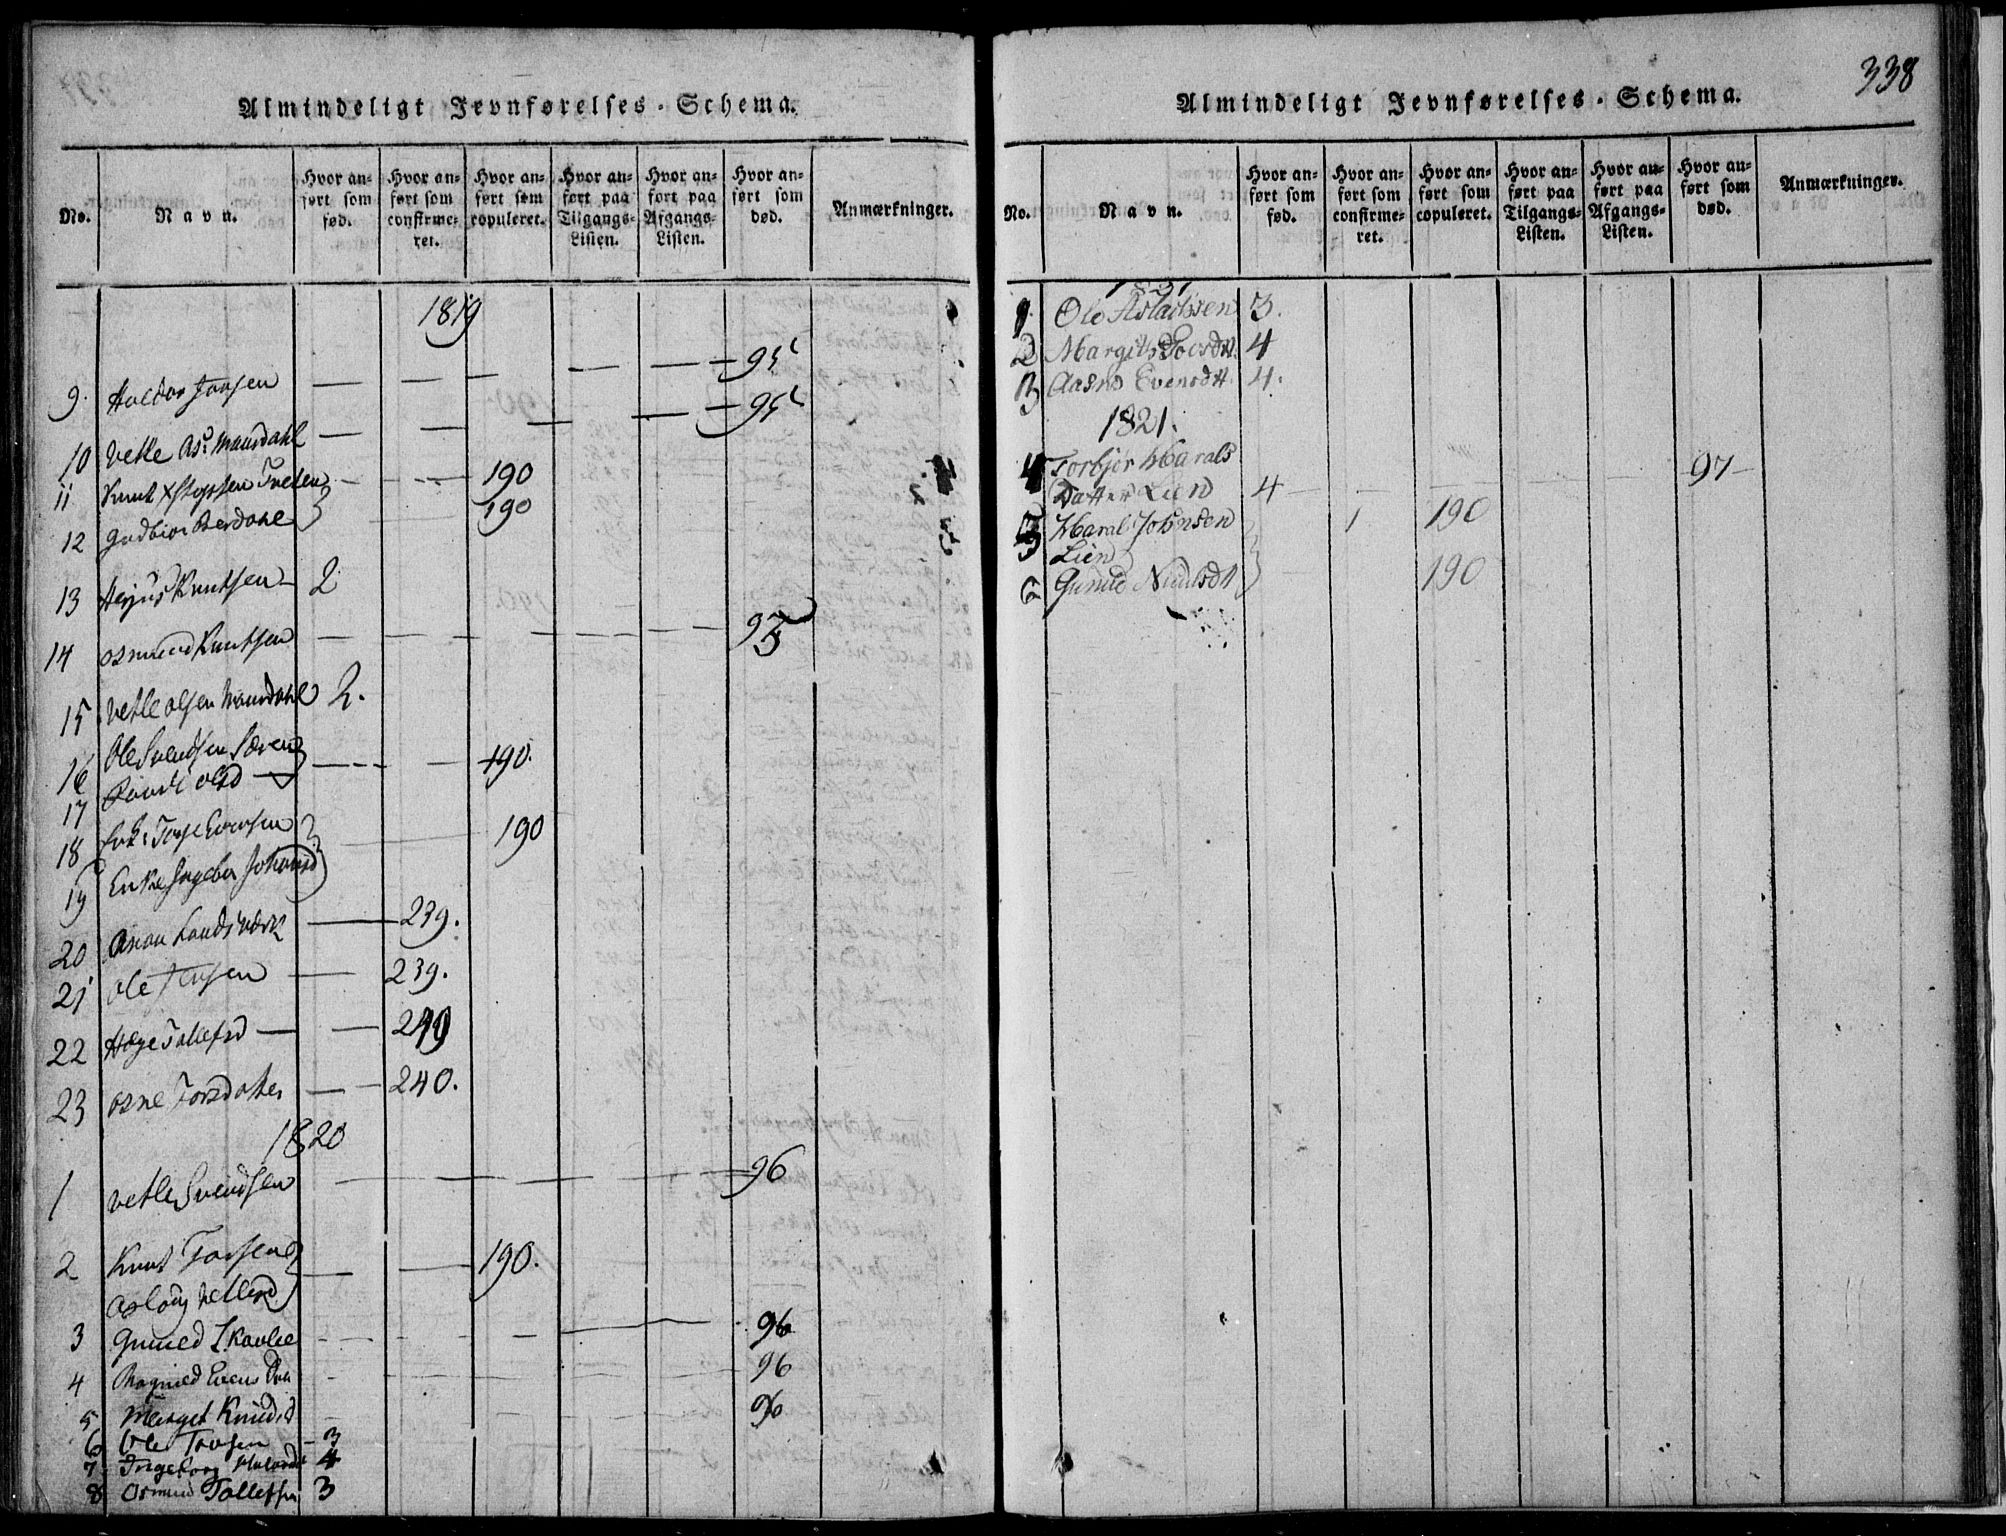 Almindeligt Jevnførelses-Schema.
No.
Navn.
Hvor anført som fød.
Hvor anført som confirmeret.
Hvor anført som copuleret.
Hvor anført paa Tilgangs-Listen.
Hvor anført paa Afgangs-Listen.
Hvor anført som død.
Anmærkninger.
1819
9. Haldor Torsen — — — — — 95
10 Vetle As. Mandahl — — — — — 95
11 Knut Tveten — — 190
12 Gudbior Berdahl 190
13 Herjus Knutsen — 2
14 Osmund Knutsen — — — — — 95
15 Vetle Olsen 2.
16 Ole Svendsen 190.
17 Olsd
18 Torje Evensen 190
19 Enke Ingebor Johannsd
20 Landsværk — 239.
21 Ole Jensen — 239.
22 Hæge Tallefsd — 240
23 Osne Torsdatter — 240.
1820
1 Vetle Svendsen — — — — — 96
2 Knut Torsen — — 190.
Aslaug Vetlesd
3 Gunild Skavlie — — — 96
4 Ragnild Evens 96
5 Marget Knudsd 96
6 Ole Torsen — 3
7 Ingeborg Halvorsd 4
8 Osmund Tallefsen 3
338
Almindeligt Jevnførelses-Schema.
No.
Navn.
Hvor anført som fød.
Hvor anført som confirmeret.
Hvor anført som copuleret.
Hvor anført paa Tilgangs-Listen.
Hvor anført paa Afgangs-Listen.
Hvor anført som død.
Anmærkninger.
1821
1 Ole Aslachsen 3.
2 Margith 4
3 Aasne Evensdtt. 4.
1821.
4 Torbjør Harals
Datter Lien 4 — — — 97 —
5 Haral Johnsen 1 190
Lien
6 Gunild Nuulsdtt 190